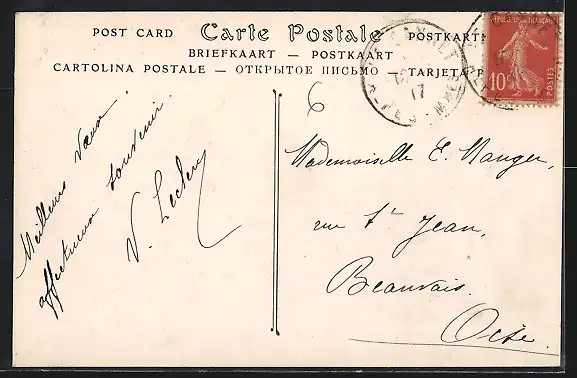 POST CARD Carte Postale POSTKARTE
BRIEFKAART — POSTKAART
CARTOLINA POSTALE — ОТКРЫТОЕ ПИСЬМО — TARJETA P
REPUBLIQUE FRANÇAISE
10c
POSTES
17
6
Meilleurs Vœux
affectueux souvenir.
V. Leclerq
Mademoiselle E. Mauger,
rue St Jean,
Beauvais.
Oise.